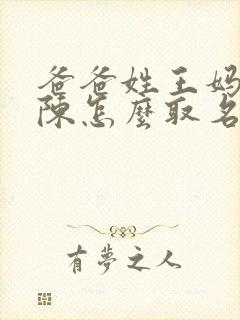 爸爸姓王妈
陳怎麼取名
有夢之人